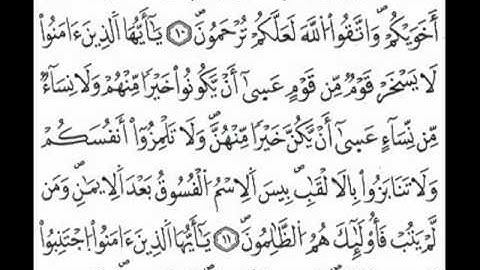 أَخَوَيْكُمْ وَاتَّقُوا۟ اللَّهَ لَعَلَّكُمْ تُرْحَمُونَ ١٠ يَـٰٓأَيُّهَا الَّذِينَ ءَامَنُوا۟
لَا يَسْخَرْ قَوْمٌ مِّن قَوْمٍ عَسَىٰٓ أَنْ يَكُونُوا۟ خَيْرًا مِّنْهُمْ وَلَا نِسَآءٌ
مِّن نِّسَآءٍ عَسَىٰٓ أَنْ يَكُنَّ خَيْرًا مِّنْهُنَّ وَلَا تَلْمِزُوٓا۟ أَنفُسَكُمْ
وَلَا تَنَابَزُوا۟ بِالَالْقَٰبِ بِيسَ اَلِاسْمُ الْفُسُوقُ بَعْدَ اَلِايمَٰنِ وَمَن
لَّمْ يَتُبْ فَأُو۟لَٰٓئِكَ هُمُ الظَّٰلِمُونَ ١١ يَـٰٓأَيُّهَا الَّذِينَ ءَامَنُوا۟ اجْتَنِبُوا۟